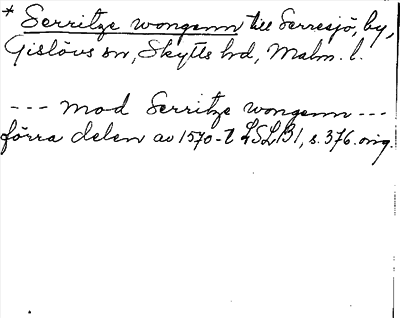 * Serritze wongenn till Serresjö, by,
Gislövs sn, Skytts hd, Malm. l.
--- mod Serritze wongenn ---
förra delen av 1570-t LSLB1, s. 376. orig.